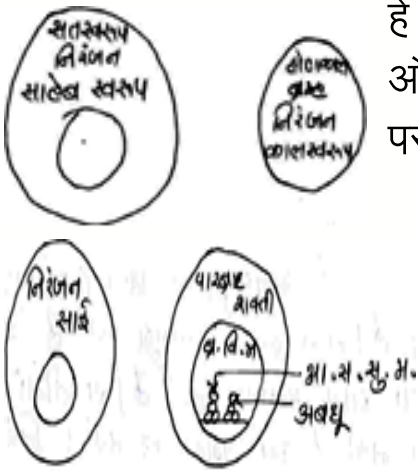 सतस्वरूप
निरंजन
साहेब स्वरूप
होणकाल
ब्रम्ह
निरंजन
कालस्वरूप
है
निरंजन
साई
पारब्रम्ह
शक्ती
ब्र.वि.म
अबधू